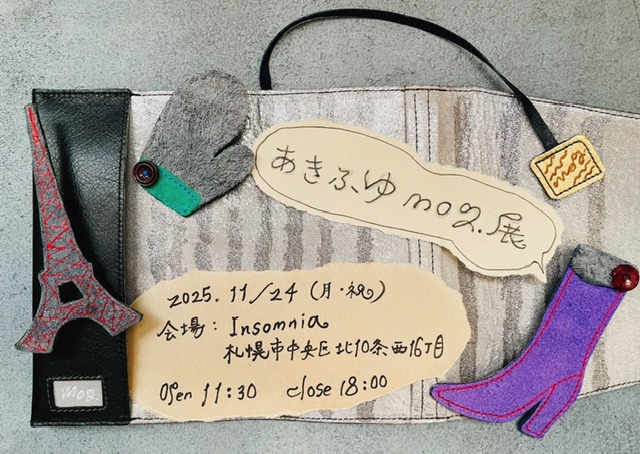 あきふゆmoz.展
moz.
2025. 11/24 (月・祝)
会場：Insomnia
札幌市中央区北10条西16丁目
Open 11:30 close 18:00
moz.